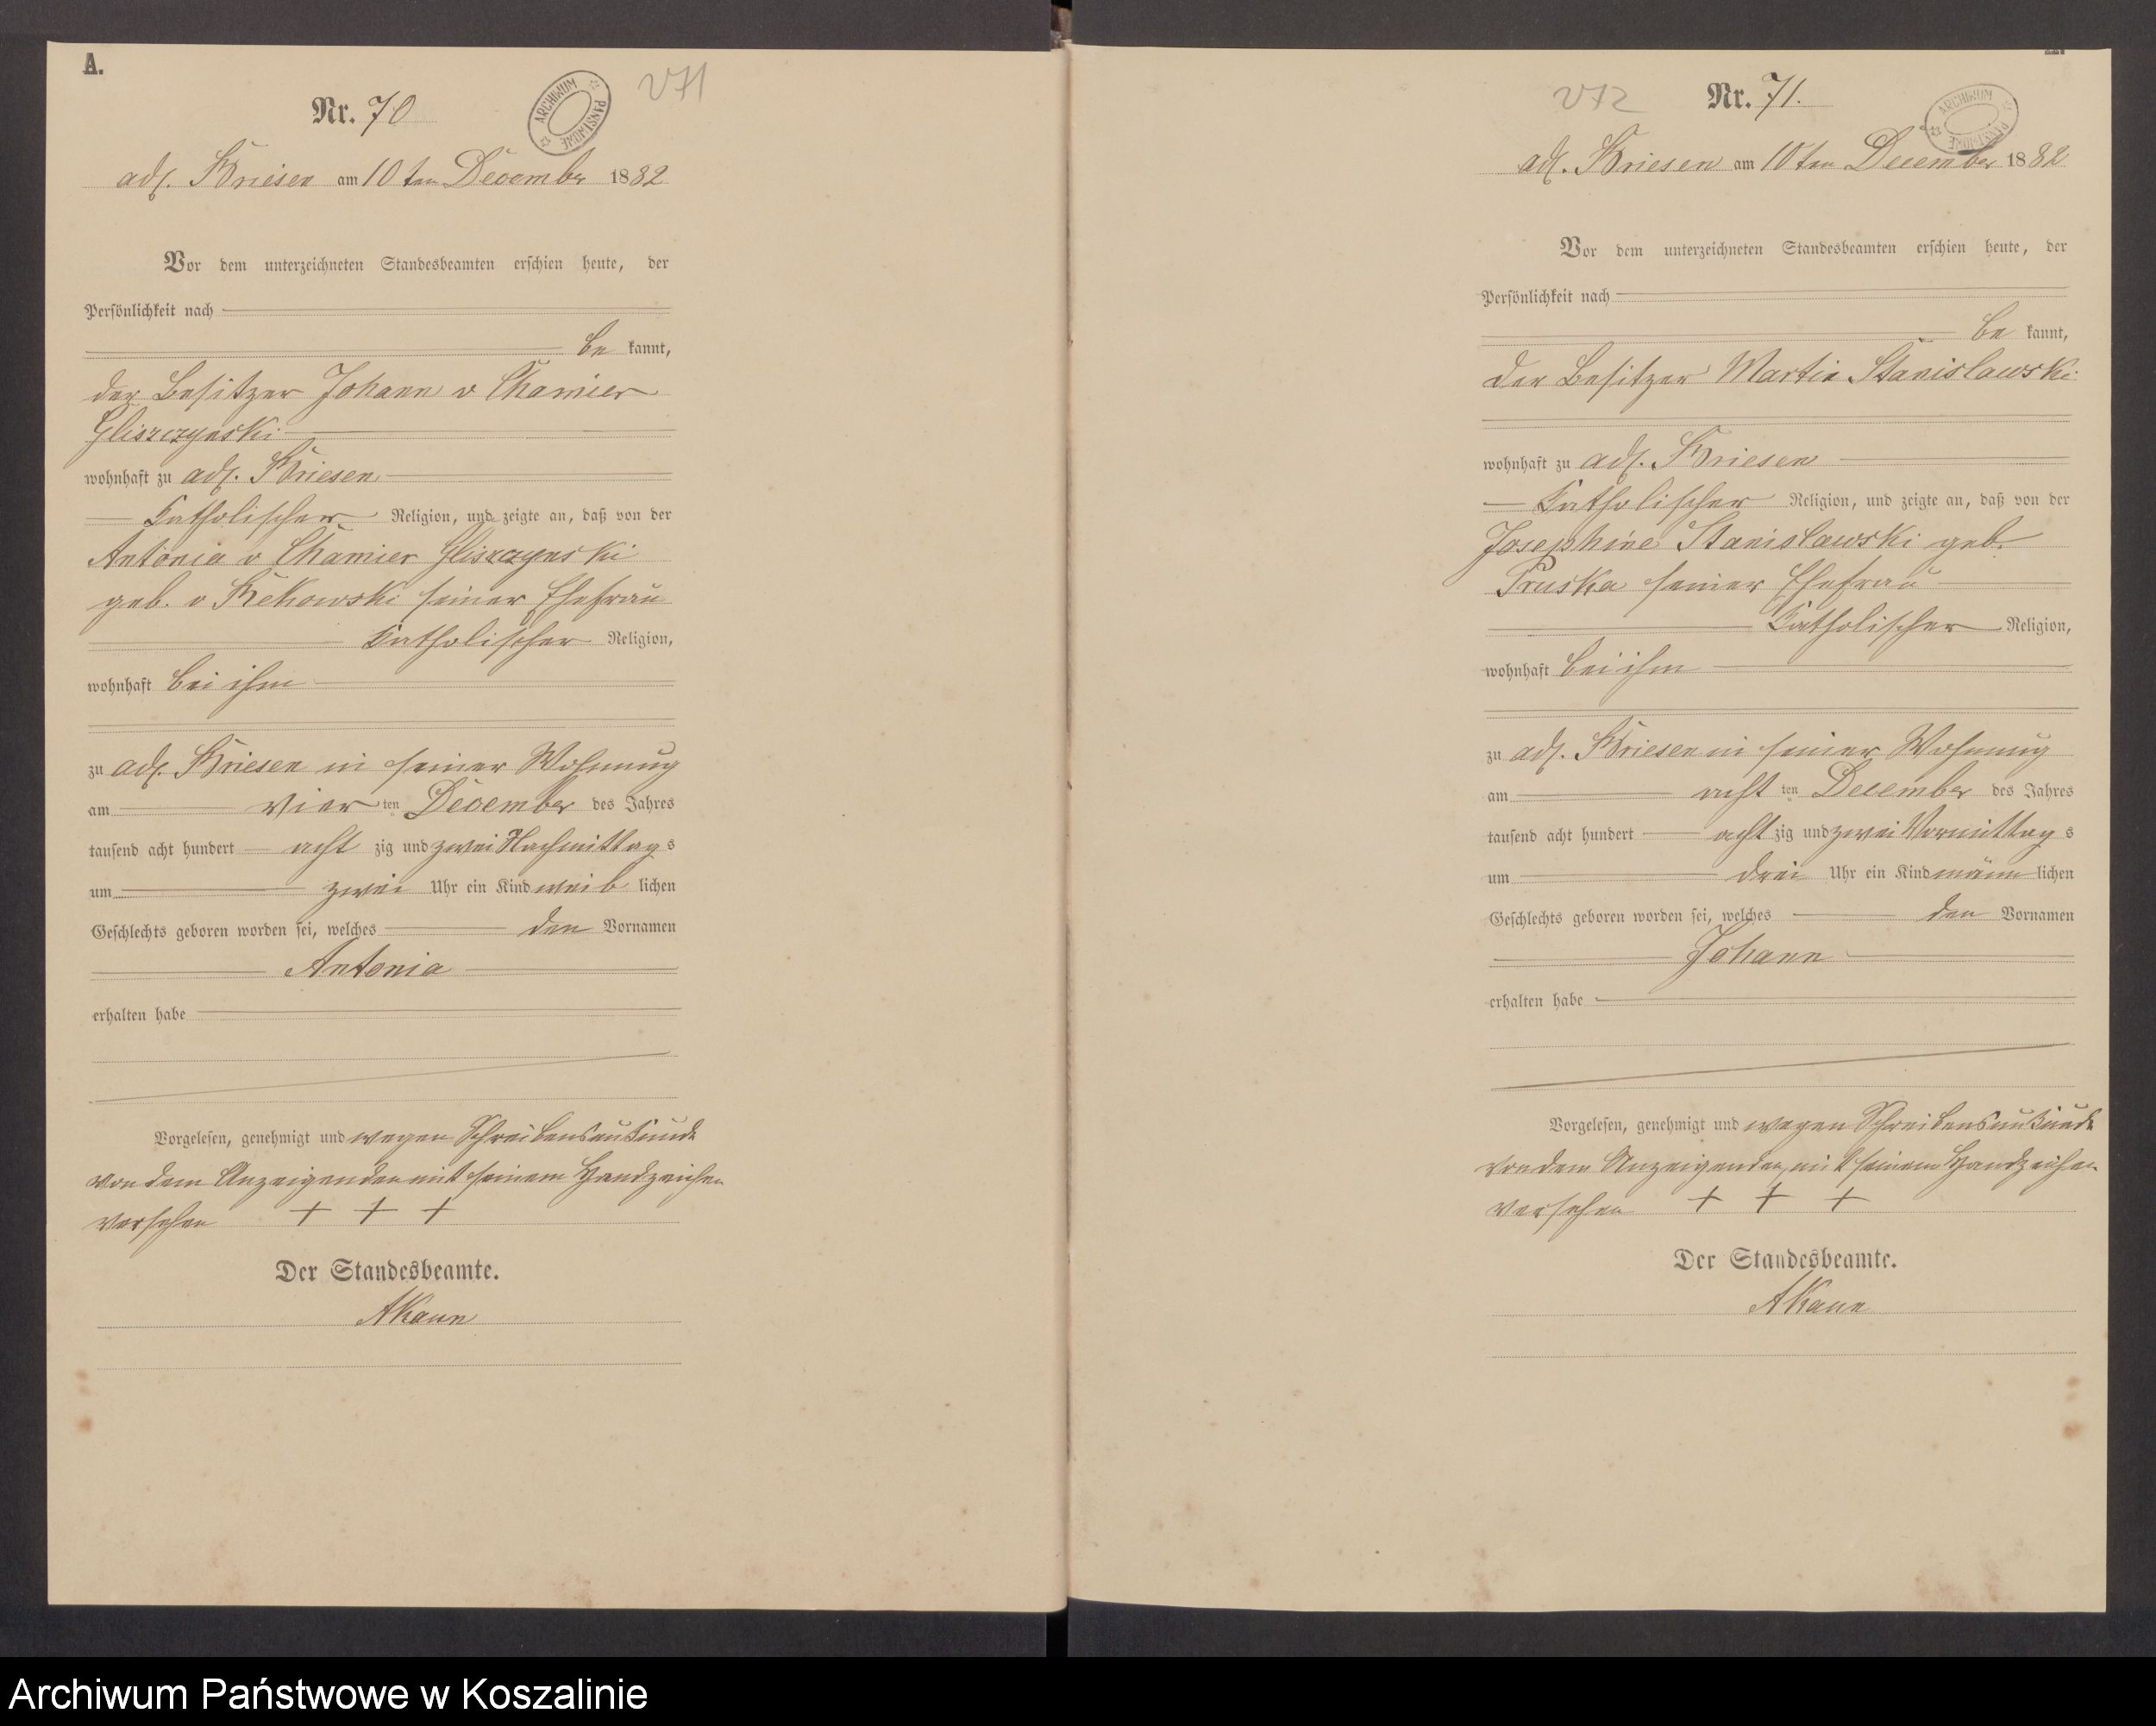 A.
Nr. 70
ARCHIWUM PAŃSTWOWE
271
adl. Briesen am 10ten December 1882
Vor dem unterzeichneten Standesbeamten erschien heute, der
Persönlichkeit nach
be kannt,
der Besitzer Johann v Chamier
Gliszczynski
wohnhaft zu adl. Briesen
katholischer Religion, und zeigte an, daß von der
Antonia v Chamier Gliszczynski
geb. v Rekowski seiner Ehefrau
katholischer Religion,
wohnhaft bei ihm
zu adl. Briesen in seiner Wohnung
am vier ten December des Jahres
tausend acht hundert acht zig und zwei Nachmittags
um zwei Uhr ein Kind weib lichen
Geschlechts geboren worden sei, welches den Vornamen
Antonia
erhalten habe
Vorgelesen, genehmigt und wegen Schreibensunkunde
von dem Anzeigenden mit seinem Handzeichen
versehen + + +
Der Standesbeamte.
AKaun
272
Nr. 71.
ARCHIWUM PAŃSTWOWE
adl. Briesen am 10ten December 1882
Vor dem unterzeichneten Standesbeamten erschien heute, der
Persönlichkeit nach
be kannt,
der Besitzer Martin Stanislawski
wohnhaft zu adl. Briesen
katholischer Religion, und zeigte an, daß von der
Josephine Stanislawski geb.
Pruska seiner Ehefrau
katholischer Religion,
wohnhaft bei ihm
zu adl. Briesen in seiner Wohnung
am acht ten December des Jahres
tausend acht hundert acht zig und zwei Vormittags
um drei Uhr ein Kind männ lichen
Geschlechts geboren worden sei, welches den Vornamen
Johann
erhalten habe
Vorgelesen, genehmigt und wegen Schreibensunkunde
von dem Anzeigenden mit seinem Handzeichen
versehen + + +
Der Standesbeamte.
AKaun
Archiwum Państwowe w Koszalinie